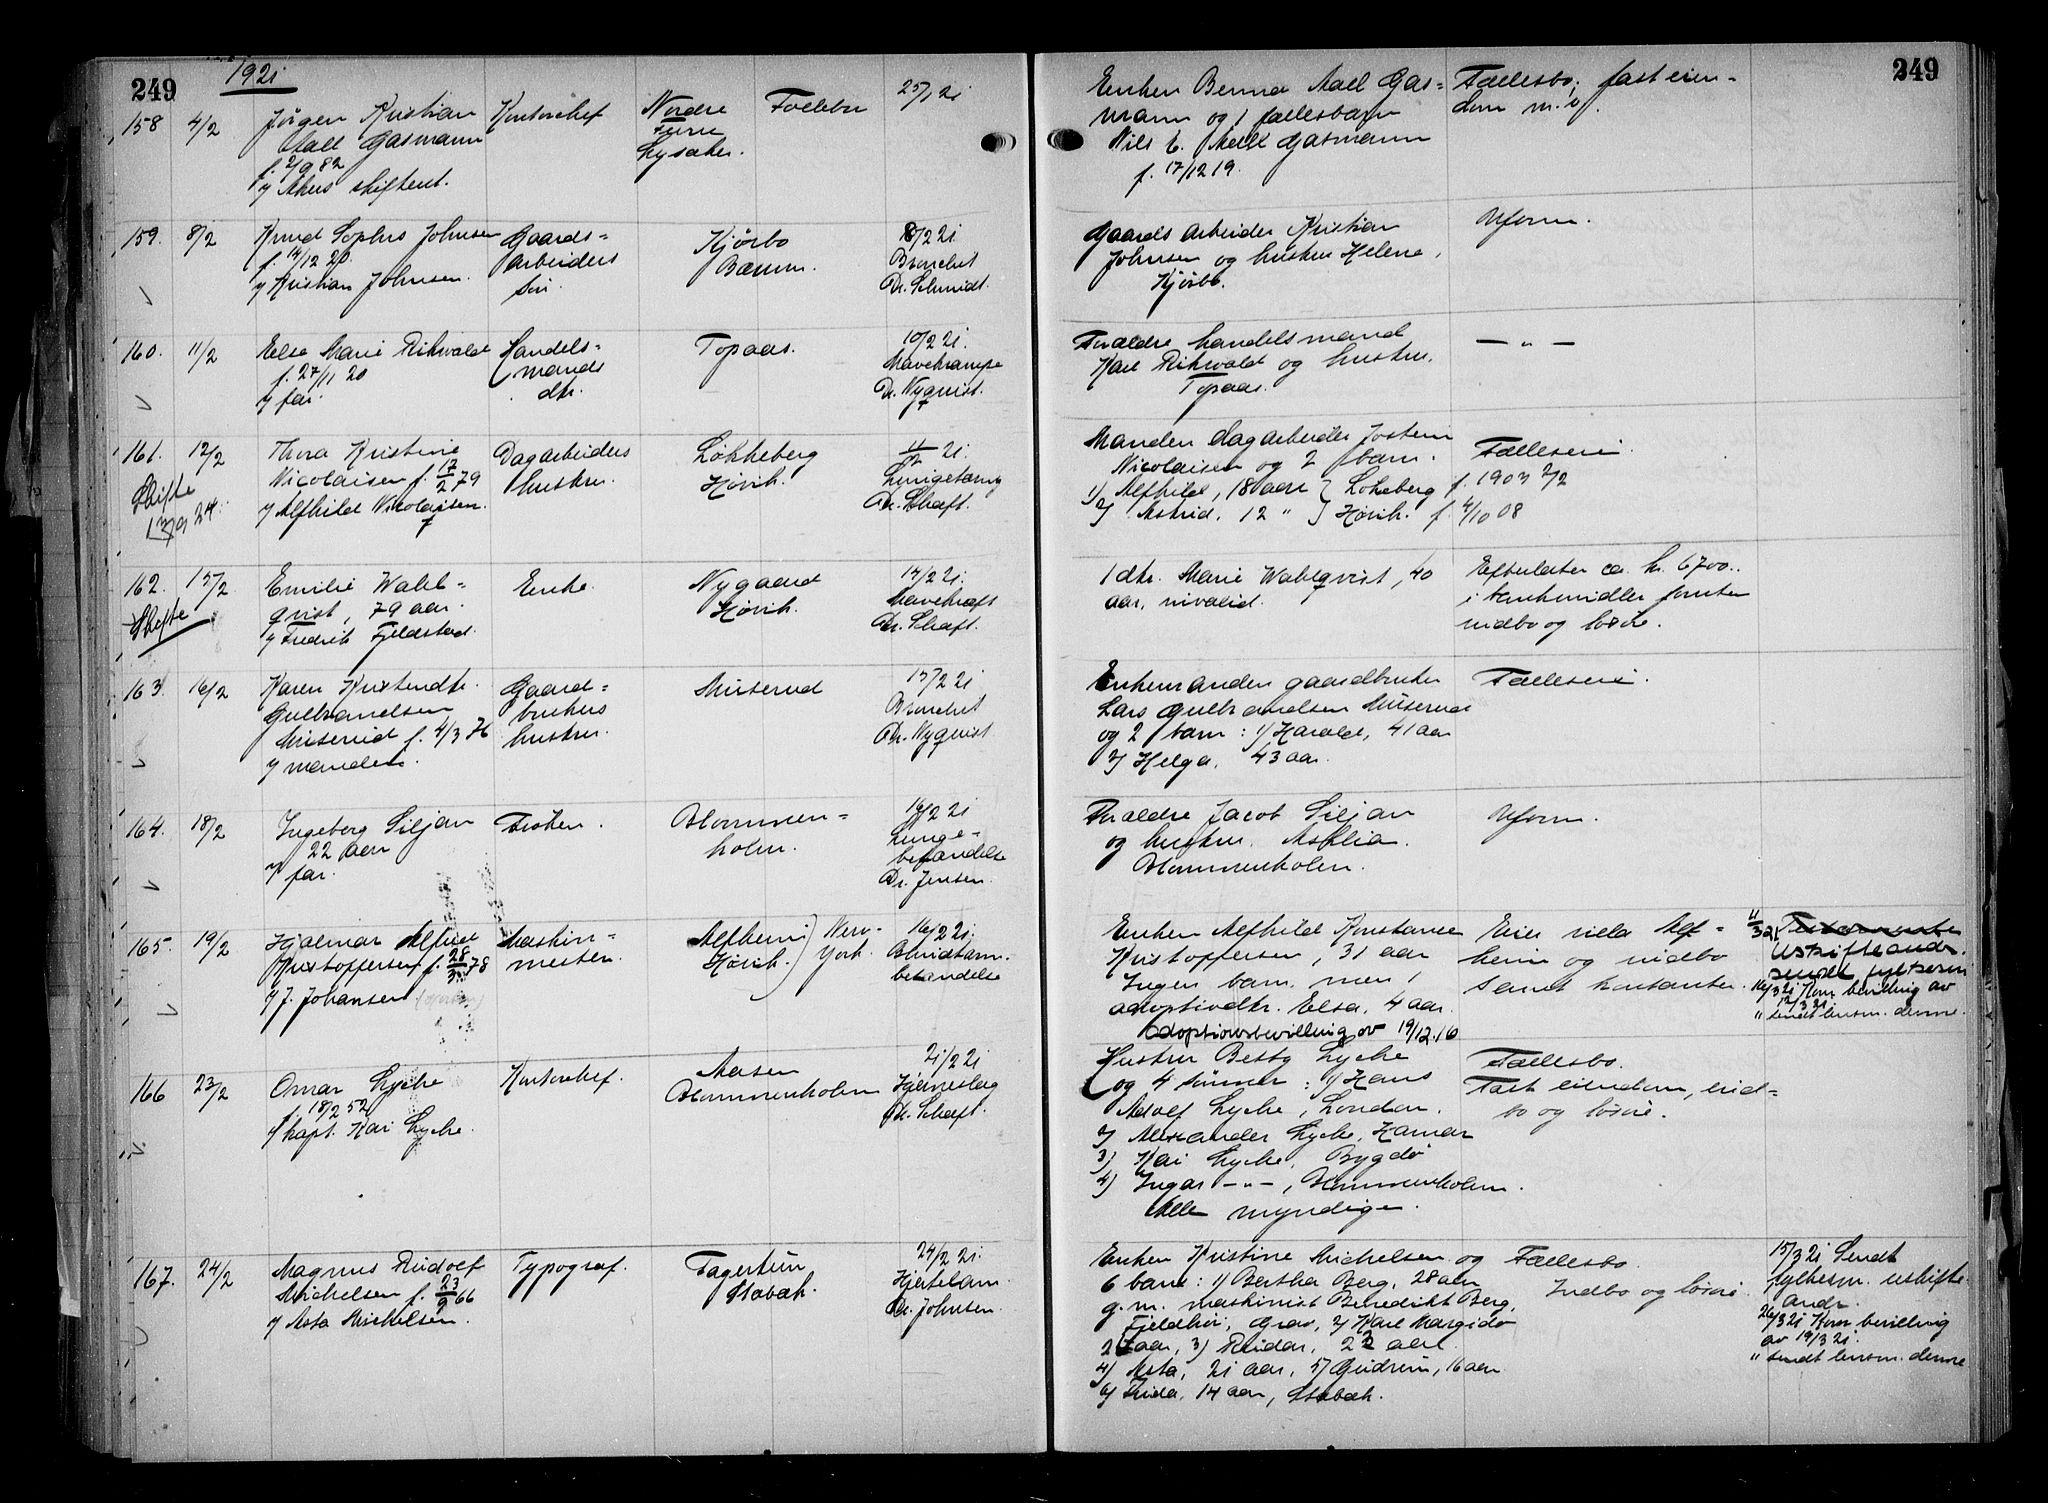 249
1921
158 4/2 Jörgen Kristian Kontorchef Nordre Follebu 25/1 21
Aall Gasmann Furu
f. 2/9 82 Lysaker.
v/ Akers skifteret.
159. 8/2 Knud Sophus Johnsen Gaards= Kjørbo 8/2 21
f. 14/12 20. arbeiders Bærum. Bronchit
v/ Kristian Johnsen. søn. Dr. Schmidt.
160. 11/2 Else Marie Rihwald Handels= Topaas. 10/2 21.
f. 27/11 20 mands Mavekrampe
v/ far. dtr. Dr. Nyquist.
161. 12/2 Thora Kristine Dagarbeiders Løkkeberg 11/2 21.
Nicolaisen f. 17/2 79 hustru. Høvik. Lungetæring
Skifte v/ Alfhild Nicolaisen. Dr. Schaft.
13/9 24.
162. 15/2 Emilie Wahl= Enke. Nygaard 14/2 21.
Skifte qvist, 79 aar. Høvik. Mavekræft
v/ Fredrik Fjeldstad. Dr. Schaft.
163. 16/2 Karen Kristendtr. Gaard= Muserud 15/2 21
Gulbrandsen brukers Bronchit
Muserud f. 4/3 76 hustru. Dr. Nyquist
v/ manden.
164. 18/2 Ingeborg Siljan Frøken. Blommen= 16/2 21
22 aar holm. Lunge=
v/ far. betændelse
Dr. Jensen.
165. 19/2 Hjalmar Alfred Maskin= Alfheim New- 16/2 21.
Kristoffersen f. 28/3 78 mester. Høvik. York. Blindtarm.
v/ J. Johansen betændelse
166 23/2 Omar Lyche Kontorchef. Aasen 21/2 21
f. 18/2 52 Blommenholm Hjerneslag
v/ kapt. Kai Lyche. Dr. Schaft.
167. 24/2 Magnus Rudolf Typograf. Fagertun 24/2 21.
Michelsen f. 23/9 66 Stabæk. Hjertelam.
v/ Asta Michelsen. Dr. Johnsen.
249
Enken Benna Aall Gas= Fællesbo, fast eien=
mann og 1 fællesbarn dom m.v.
Nils C. Aall Gasmann
f. 17/12 19.
Gaardsarbeider Kristian Uform.
Johnsen og hustru Helene,
Kjørbo.
Forældre handelsmand — " —
Karl Rihwald og hustru.
Topaas.
Manden dagarbeider Jostein Fælleseie.
Nicolaisen og 2 barn.
1) Alfhild, 18 aar } Lökeberg f. 1903 2/2
2) Astrid, 12 " } Høvik. f. 4/10 08
1 dtr. Marie Wahlqvist, 40 Efterlater ca. kr. 6700..
aar, invalid. i bankmidler foruten
indbo og løsøre.
Enkemanden gaardbruker Fælleseie.
Lars Gulbrandsen Muserud
og 2 barn: 1) Harald, 41 aar
2) Helga, 43 aar.
Forældre Jacob Siljan Uform.
og hustru
Blommenholm.
Enken Alfhild Konstance Eier villa Alf= 11/3 21
Kristoffersen, 31 aar heim og indbo Uskifteandr.
Ingen barn, men 1 samt kontanter. sendt fylkesm
adoptivdtr. Elsa, 4 aar. 16/3 21 Kom bevilling av 12/3 21.
Adoptionsbevilling av 19/12.16 " sendt lensm. denne.
Hustru Betsy Lyche Fællesbo.
og 4 sønner: 1) Hans Fast eiendom, ind=
Adolf Lyche, London. bo og løsøre.
2) Alexander Lyche, Hamar
3) Kai Lyche, Bygdö
4) Ingar — " —, Blommenholm.
Alle myndige.
Enken Kristine Michelsen og Fællesbo. 15/3 21 Sendt
6 barn: 1) Bertha Berg, 28 aar Indbo og løsøre. fylkesm. uskifte
g. m. maskinist Benedikt Berg, andr.
Fjeldhøi, Grav, 2) Karl Margido 26/3 21 Kom bevilling
aar, 3) Reidar, 22 aar av 19/3 21.
4) Asta, 21 aar, 5) Gudrun, 16 aar " sendt lensm. denne
6) Frida, 14 aar, Stabæk.